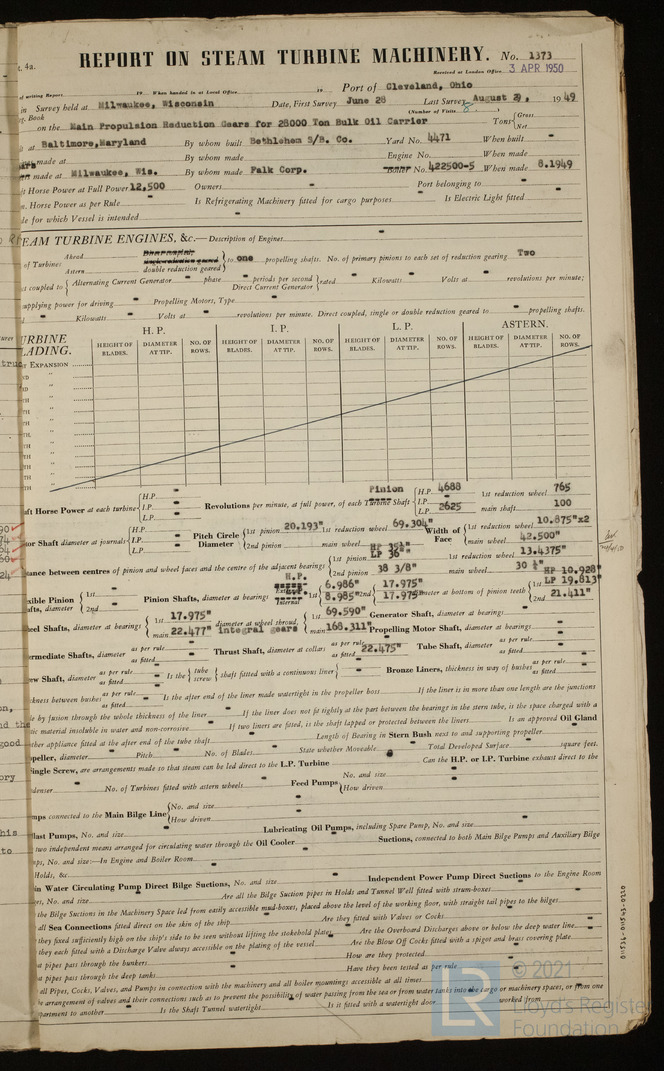 4a.
REPORT ON STEAM TURBINE MACHINERY. No. 1373
Received at London Office 3 APR 1950
of writing Report 19 When handed in at Local Office 19 Port of Cleveland, Ohio
in Survey held at Milwaukee, Wisconsin Date, First Survey June 28 Last Survey August 29, 1949
Book (Number of Visits 8 )
on the Main Propulsion Reduction Gears for 28000 Ton Bulk Oil Carrier Tons {Gross Net
at Baltimore,Maryland By whom built Bethlehem S/B. Co. Yard No. 4471 When built -
made at - By whom made - Engine No. - When made -
made at Milwaukee, Wis. By whom made Falk Corp. Boiler No. 422500-5 When made 8.1949
Horse Power at Full Power 12,500 Owners - Port belonging to -
Horse Power as per Rule - Is Refrigerating Machinery fitted for cargo purposes - Is Electric Light fitted -
de for which Vessel is intended -
STEAM TURBINE ENGINES, &c.—Description of Engines -
of Turbines Ahead Astern double reduction geared } to one propelling shafts. No. of primary pinions to each set of reduction gearing Two
coupled to { Alternating Current Generator - phase - periods per second } rated - Kilowatts - Volts at - revolutions per minute;
Direct Current Generator
supplying power for driving - Propelling Motors, Type -
- Kilowatts - Volts at - revolutions per minute. Direct coupled, single or double reduction geared to - propelling shafts.
TURBINE BLADING. H. P. I. P. L. P. ASTERN.
HEIGHT OF BLADES. DIAMETER AT TIP. NO. OF ROWS. HEIGHT OF BLADES. DIAMETER AT TIP. NO. OF ROWS. HEIGHT OF BLADES. DIAMETER AT TIP. NO. OF ROWS. HEIGHT OF BLADES. DIAMETER AT TIP. NO. OF ROWS.
EXPANSION
Pinion
Shaft Horse Power at each turbine { H.P. - I.P. - L.P. - Revolutions per minute, at full power, of each Turbine Shaft { H.P. 4688 I.P. - L.P. 2625 1st reduction wheel 765 main shaft 100
Rotor Shaft diameter at journals { H.P. - I.P. - L.P. - Pitch Circle Diameter { 1st pinion 20.193" 1st reduction wheel 69.304" 2nd pinion - main wheel - Width of Face { 1st reduction wheel 10.875"x2 main wheel 42.500"
Distance between centres of pinion and wheel faces and the centre of the adjacent bearings { 1st pinion LP 36" 2nd pinion 38 3/8" 1st reduction wheel 13.4375" main wheel 30 ½"
Flexible Pinion Shafts, diameter { 1st - 2nd - Pinion Shafts, diameter at bearings H.P. External Internal 1st 6.986" 8.985" 2nd 17.975" 17.975" diameter at bottom of pinion teeth { 1st HP 10.928" LP 19.813" 2nd 21.411"
Wheel Shafts, diameter at bearings { 1st 17.975" main 22.477" diameter at wheel shroud, integral gears { 1st 69.590" main 168.311" Generator Shaft, diameter at bearings - Propelling Motor Shaft, diameter at bearings -
Intermediate Shafts, diameter as per rule - as fitted - Thrust Shaft, diameter at collars as per rule - as fitted 22.475" Tube Shaft, diameter as per rule - as fitted -
Screw Shaft, diameter as per rule - as fitted - Is the { tube screw } shaft fitted with a continuous liner { - Bronze Liners, thickness in way of bushes as per rule - as fitted -
thickness between bushes as per rule - as fitted - Is the after end of the liner made watertight in the propeller boss - If the liner is in more than one length are the junctions
by fusion through the whole thickness of the liner - If the liner does not fit tightly at the part between the bearings in the stern tube, is the space charged with a
plastic material insoluble in water and non-corrosive - If two liners are fitted, is the shaft lapped or protected between the liners - Is an approved Oil Gland
other appliance fitted at the after end of the tube shaft - Length of Bearing in Stern Bush next to and supporting propeller -
Propeller, diameter - Pitch - No. of Blades - State whether Moveable - Total Developed Surface - square feet.
Single Screw, are arrangements made so that steam can be led direct to the L.P. Turbine - Can the H.P. or I.P. Turbine exhaust direct to the
condenser - No. of Turbines fitted with astern wheels - Feed Pumps { No. and size - How driven -
Pumps connected to the Main Bilge Line { No. and size - How driven -
Ballast Pumps, No. and size - Lubricating Oil Pumps, including Spare Pump, No. and size -
two independent means arranged for circulating water through the Oil Cooler - Suctions, connected to both Main Bilge Pumps and Auxiliary Bilge
Pumps, No. and size:—In Engine and Boiler Room -
Holds, &c. -
Main Water Circulating Pump Direct Bilge Suctions, No. and size - Independent Power Pump Direct Suctions to the Engine Room
No. and size - Are all the Bilge Suction pipes in Holds and Tunnel Well fitted with strum-boxes -
the Bilge Suctions in the Machinery Space led from easily accessible mud-boxes, placed above the level of the working floor, with straight tail pipes to the bilges -
all Sea Connections fitted direct on the skin of the ship - Are they fitted with Valves or Cocks -
they fixed sufficiently high on the ship's side to be seen without lifting the stokehold plates - Are the Overboard Discharges above or below the deep water line -
they each fitted with a Discharge Valve always accessible on the plating of the vessel - Are the Blow Off Cocks fitted with a spigot and brass covering plate -
pipes pass through the bunkers - How are they protected -
pipes pass through the deep tanks - Have they been tested as per rule -
all Pipes, Cocks, Valves, and Pumps in connection with the machinery and all boiler mountings accessible at all times -
arrangement of valves and their connections such as to prevent the possibility of water passing from the sea or from water tanks into the cargo or machinery spaces, or from one
compartment to another - Is the Shaft Tunnel watertight - Is it fitted with a watertight door - worked from -
© 2021
LR Lloyd's Register
Foundation